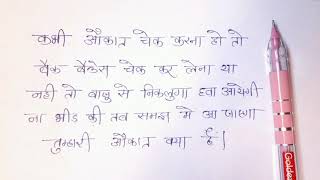 कभी औकात चेक करना हो तो
बैंक बैलेंस चेक कर लेना या
नही तो बाजु से निकलुगा हवा आयेगी
ना भीड की तब समझ मे आ जाएगा
तुम्हारी औकात क्या है।
Golden